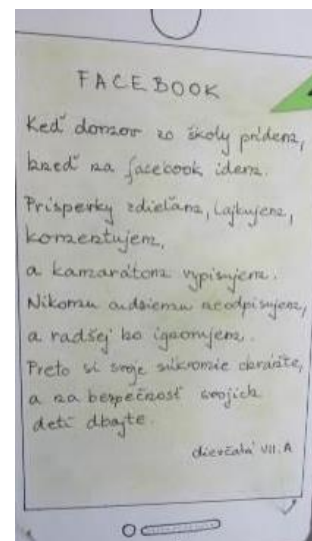 FACEBOOK
Keď domov zo školy prídem,
hneď na facebook idem.
Príspevky zdieľam, lajkujem,
komentujem,
a kamarátom vypisujem.
Nikomu cudziemu neodpisujem,
a radšej ho ignorujem.
Preto si svoje súkromie chráňte,
a na bezpečnosť svojich
detí dbajte.
dievčatá VII.A